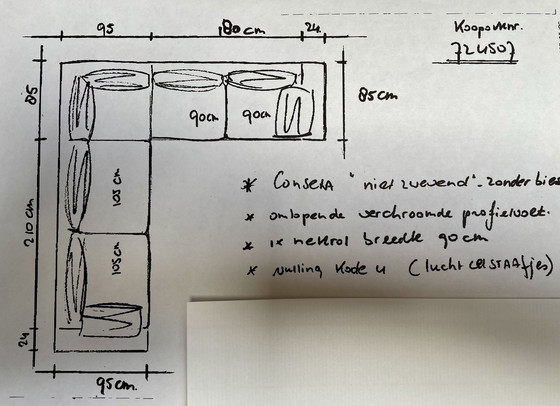 95
180 cm
24
Kooporknr.
724507
85
90cm
90cm
85cm
105 cm
* Conseta "niet zwevend" - zonder bies
* omlopende verchroomde profielvoet.
210 cm
* 1x nekrol breedte 90 cm
105 cm
* vulling kode 4 (lucht celstaafjes)
24
95cm.